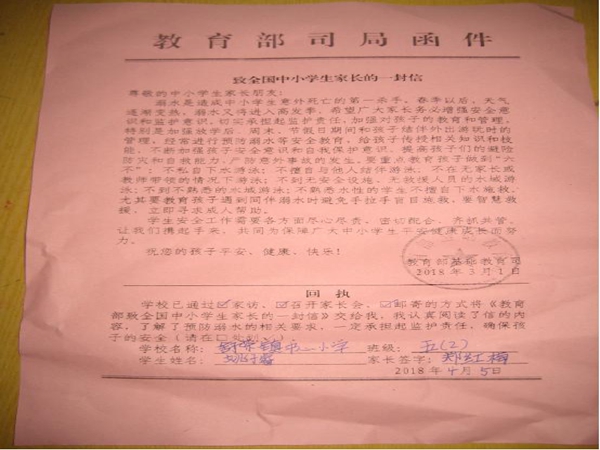 教育部司局函件
致全国中小学生家长的一封信
尊敬的中小学生家长朋友：
溺水是造成中小学生意外死亡的第一杀手。春季以后，天气
逐渐变热，溺水又将进入高发季。希望广大家长务必增强安全意
识和监护意识，切实承担起监护责任，加强对孩子的教育和管理，
特别是加强放学后、周末、节假日期间和孩子结伴外出游玩时的
管理，经常进行预防溺水等安全教育，给孩子传授相关知识和技
能，不断加强孩子安全意识和自我保护意识，提高孩子们的避险
防灾和自救能力，严防意外事故的发生。要重点教育孩子做到“六
不”：不私自下水游泳；不擅自与他人结伴游泳；不在无家长或
教师带领的情况下游泳；不到无安全设施、无救援人员的水域游
泳；不到不熟悉的水域游泳；不熟悉水性的学生不擅自下水施救。
尤其要教育孩子遇到同伴溺水时避免手拉手盲目施救，要智慧救
援，立即寻求成人帮助。
学生安全工作需要各方面尽心尽责、密切配合、齐抓共管。
让我们携起手来，共同为保障广大中小学生平安健康成长而努
力。
祝您的孩子平安、健康、快乐！
教育部基础教育司
2018年3月1日
回执
学校已通过☑家访、☑召开家长会、☑邮寄的方式将《教育
部致全国中小学生家长的一封信》交给我，我认真阅读了信的内
容，了解了预防溺水的相关要求，一定承担起监护责任，确保孩
子的安全（请在□处
学校名称： 镇中心小学 班级：五(2)
学生姓名： 家长签字：郑红梅
2018年4月5日